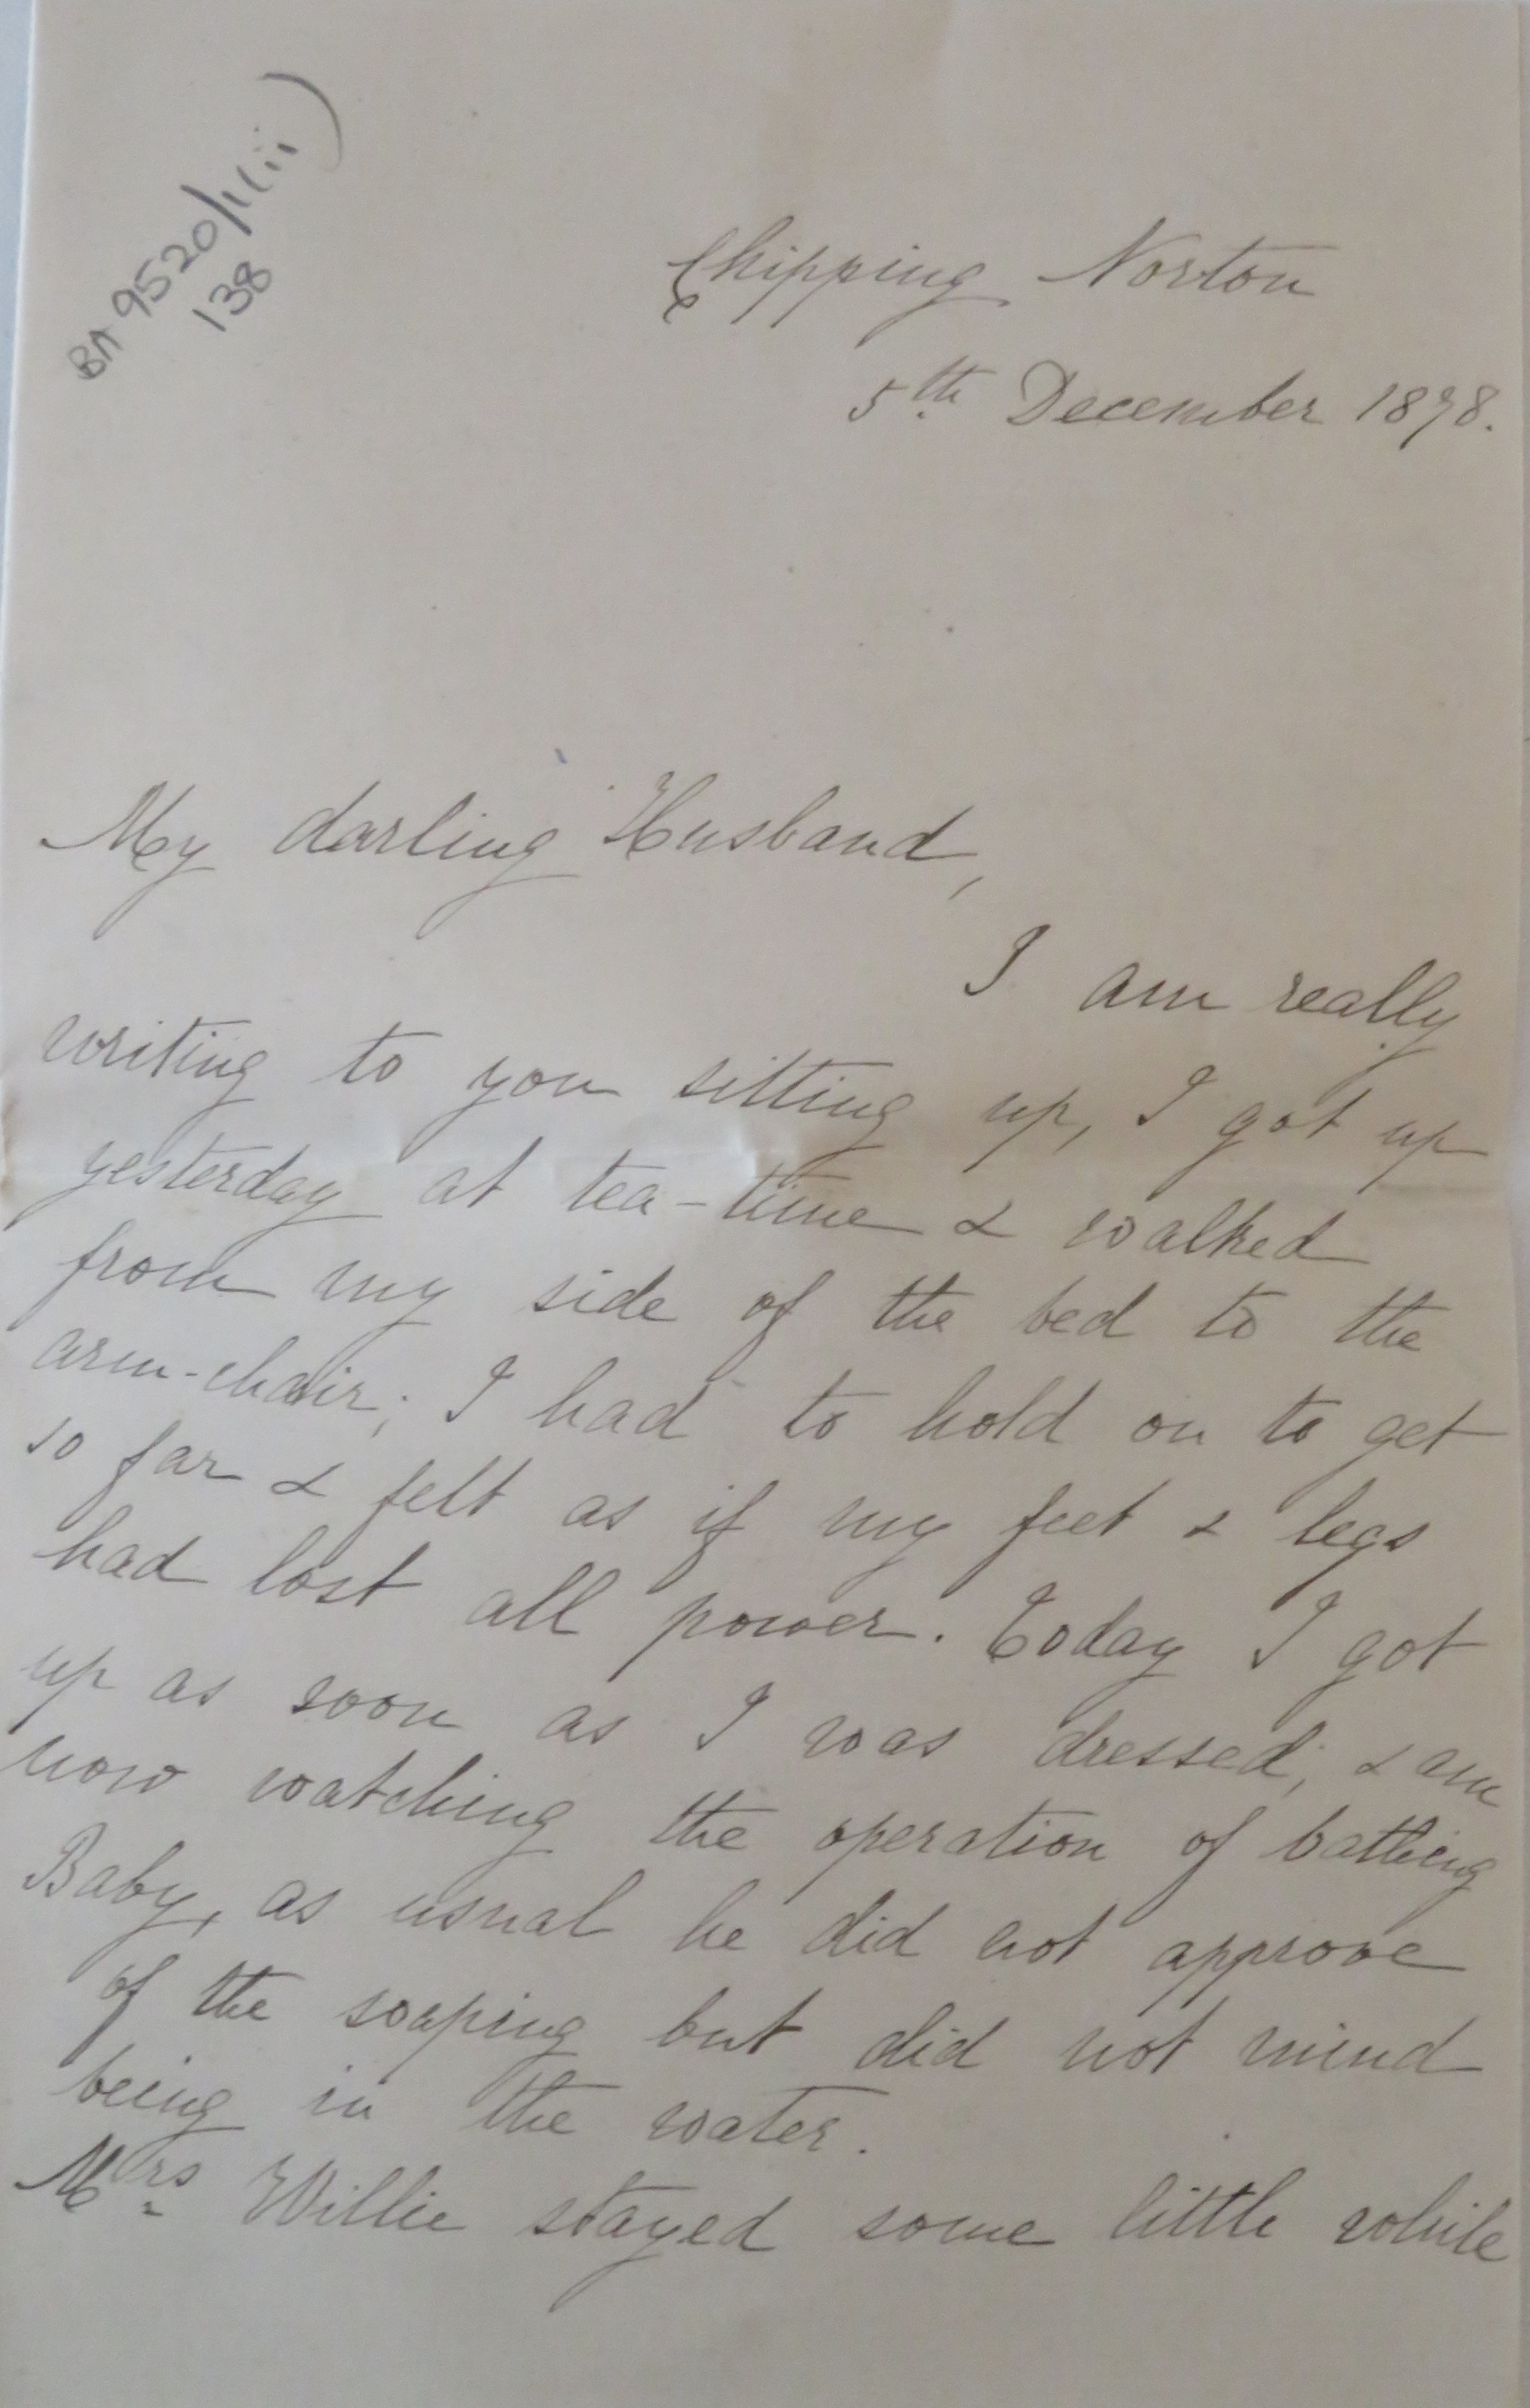 BA 9520/1(ii)
138
Chipping Norton
5th December 1898.
My darling Husband,
I am really
writing to you sitting up, I got up
yesterday at tea-time & walked
from my side of the bed to the
arm-chair; I had to hold on to get
so far & felt as if my feet & legs
had lost all power. Today I got
up as soon as I was dressed, & am
now watching the operation of bathing
Baby, as usual he did not approve
of the soaping but did not mind
being in the water.
Mrs Willie stayed some little while